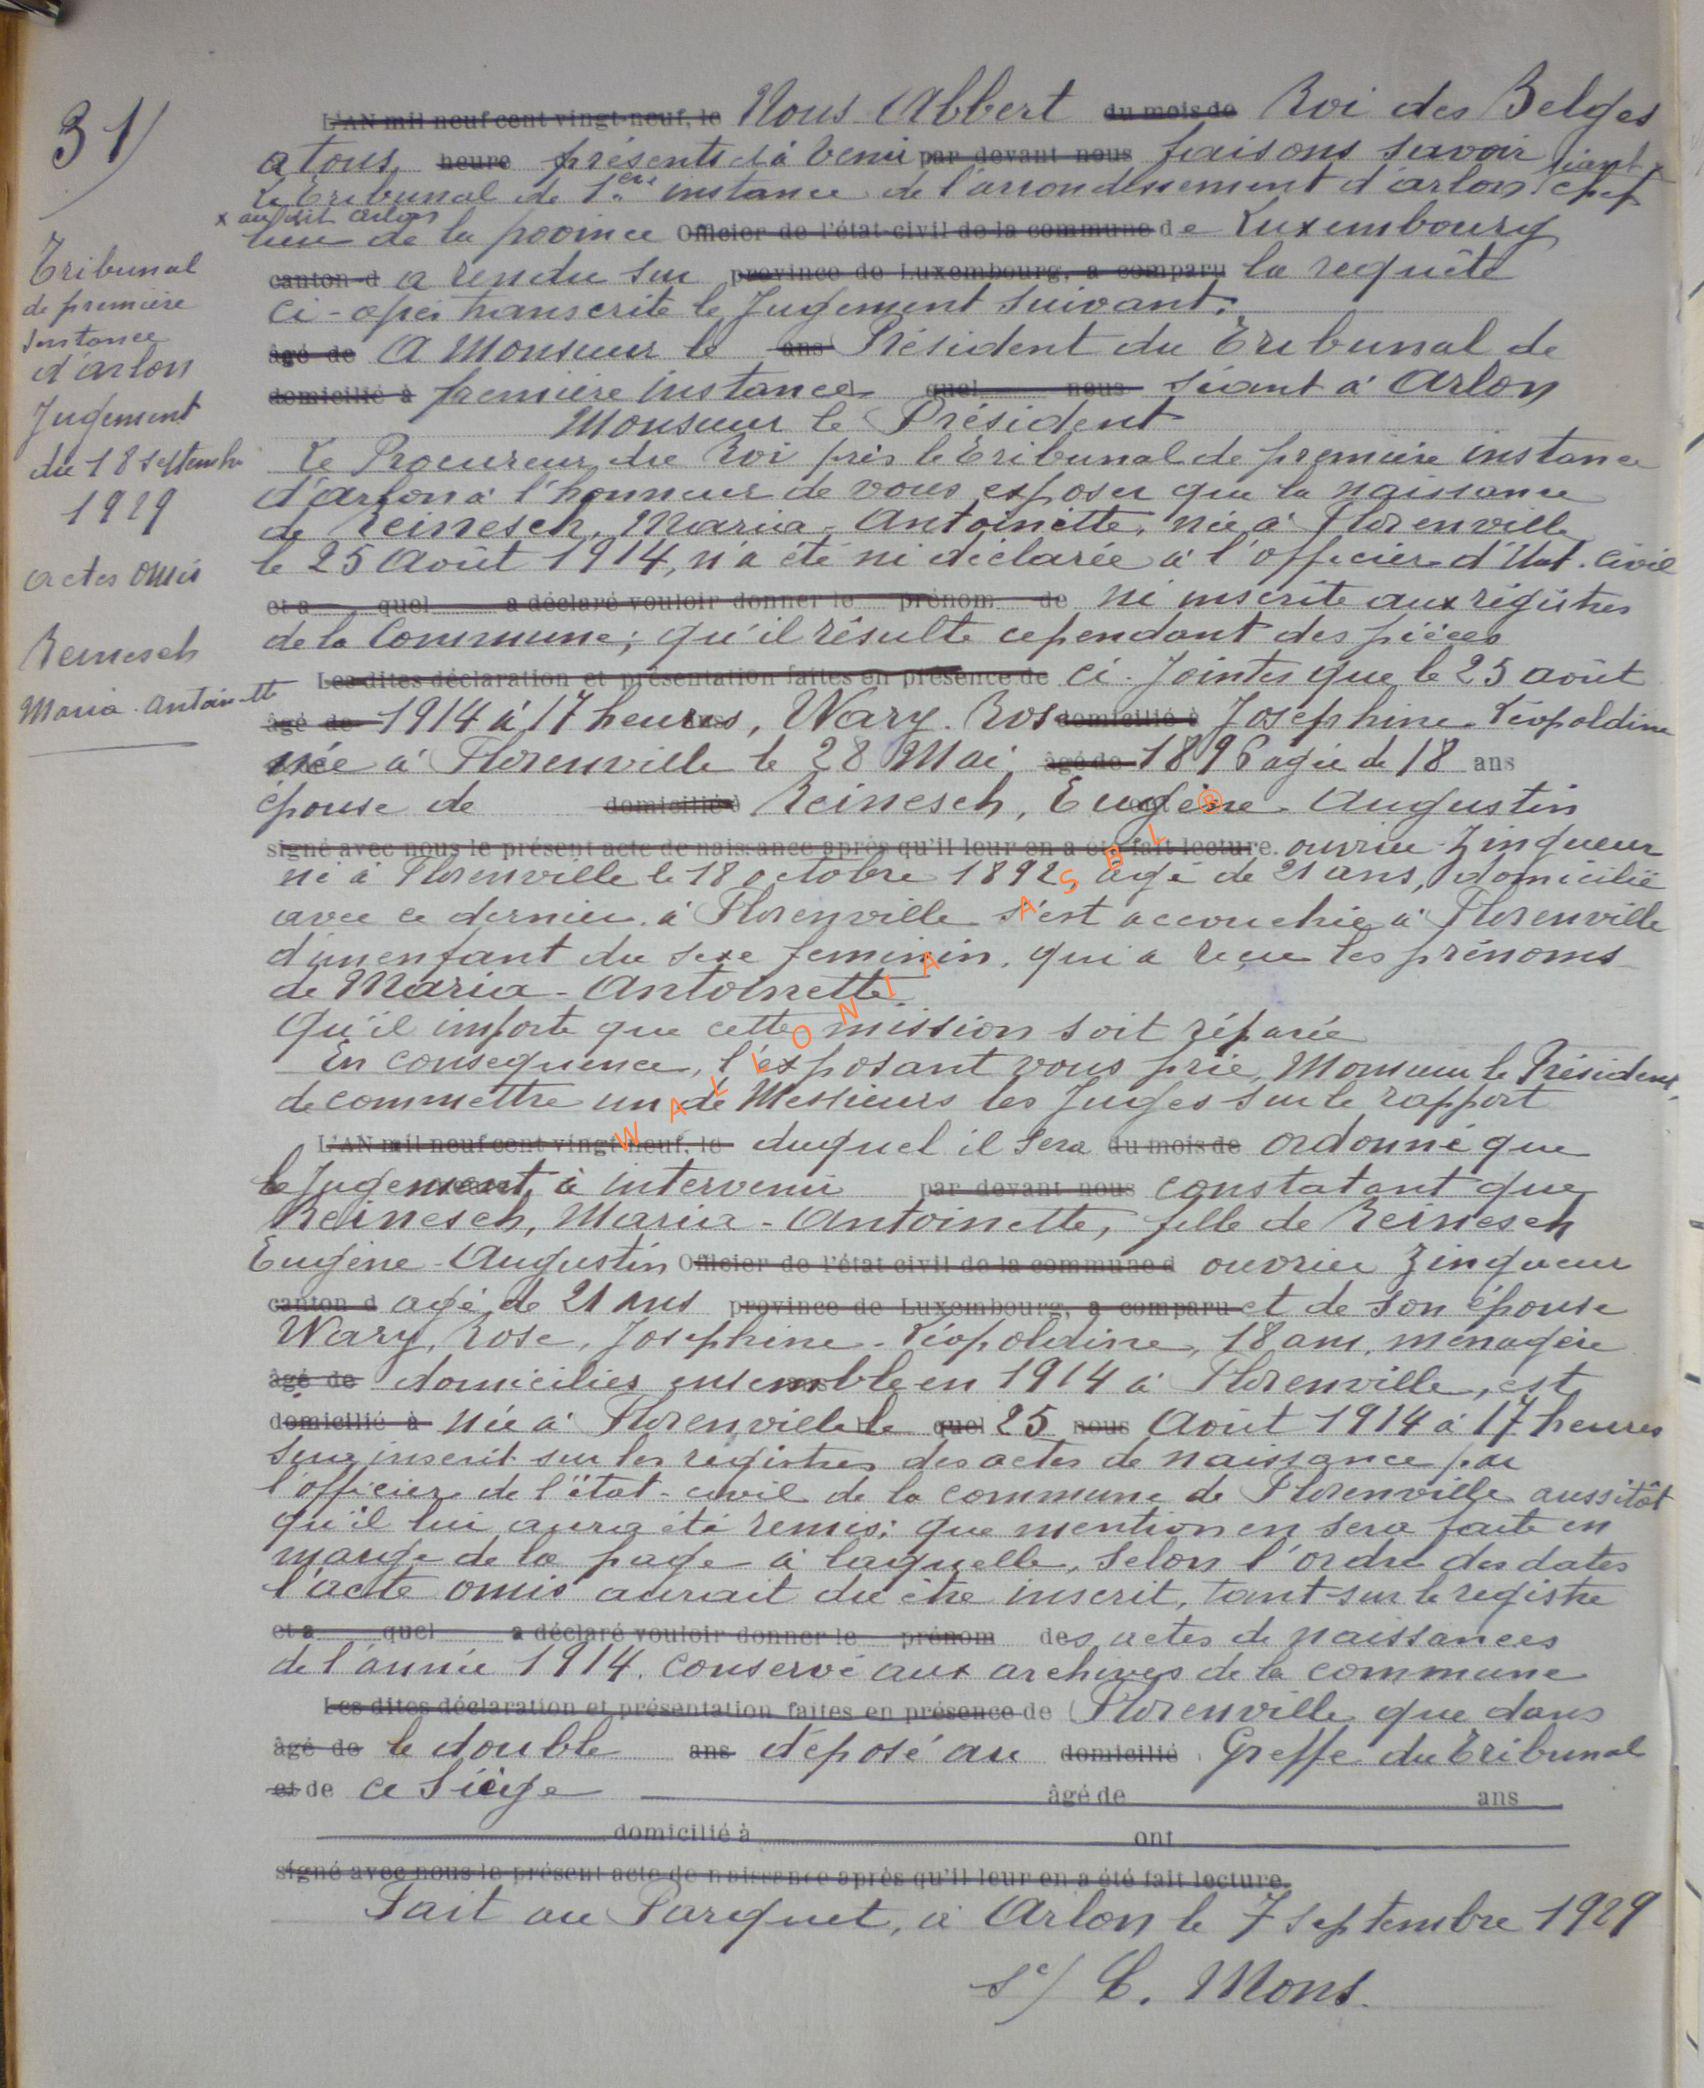 31)
Tribunal
de première
Instance
d'Arlon
Jugement
du 18 septembre
1929
actes omis
Reinesch
Maria-Antoinette
L'AN mil neuf cent vingt-neuf, le Nous Albert du mois de Roi des Belges
a tous, heure présents et à venir par devant nous faisons savoir
Le Tribunal de 1ère instance de l'arrondissement d'arlon séant x chef
x au dit Arlon
lieu de la province Officier de l'état-civil de la commune de Luxembourg
canton d a rendu sur province de Luxembourg, a comparu la requête
ci-après transcrite le Jugement suivant:
âgé de A Monsieur le ans Président du Tribunal de
domicilié à première instance quel nous séant à Arlon
Monsieur le Président
Le Procureur du Roi près le Tribunal de première instance
d'Arlon a l'honneur de vous exposer que la naissance
de Reinesch, Maria-Antoinette, née à Florenville
le 25 Août 1914, n'a été ni déclarée à l'officier d'Etat-civil
et a quel a déclaré vouloir donner le prénom de ni inscrite aux régistres
de la Commune; qu'il résulte cependant des pièces
Les dites déclaration et présentation faites en présence de ci-jointes que le 25 août
âgé de 1914 à 17 heures, Wary. Rose domicilié à Joséphine-Léopoldine
née à Florenville le 28 Mai âgé de 1896 agée de 18 ans
épouse de domicilié à Reinesch, Eugène-Augustin
signé avec nous le présent acte de naissance après qu'il leur en a été fait lecture. ouvrier Zingueur
né à Florenville le 18 octobre 1892, agé de 21 ans, domicilié
avec ce dernier à Florenville s'est accouchée à Florenville
d'un enfant du sexe feminin, qui a reçu les prénoms
de Maria-Antoinette.
Qu'il importe que cette mission soit réparée
En consequence, l'exposant vous prie, Monsieur le Président,
de commettre un de Messieurs les Juges sur le rapport
L'AN mil neuf cent vingt-neuf, le duquel il sera du mois de ordonné que
le Jugement à intervenir par devant nous constatant que
Reinesch, Maria-Antoinette, fille de Reinesch
Eugène-Augustin Officier de l'état civil de la commune d ouvrier Zingueur
canton d agé de 21 ans province de Luxembourg, a comparu et de son épouse
Wary, Rose, Josephine-Léopoldine, 18 ans, ménagère
âgé de domiciliés ensemble en 1914 à Florenville, est
domicilié à née à Florenville le quel 25 nous Août 1914 à 17 heures
sera inscrit sur les registres des actes de naissance par
l'officier de l'état-civil de la commune de Florenville aussitôt
qu'il lui aura été remis; que mention en sera faite en
marge de la page à laquelle, selon l'ordre des dates
l'acte omis aurait du être inscrit, tant sur le registre
et a quel a déclaré vouloir donner le prénom des actes de naissances
de l'année 1914, conservé aux archives de la commune
Les dites déclaration et présentation faites en présence de Florenville que dans
âgé de le double ans déposé au domicilié Greffe du Tribunal
et de ce Siège âgé de ans
domicilié à ont
signé avec nous le présent acte de naissance après qu'il leur en a été fait lecture.
Fait au Parquet, à Arlon le 7 septembre 1929
Sé/ C. Mons.
WALLONIA ASBL ®